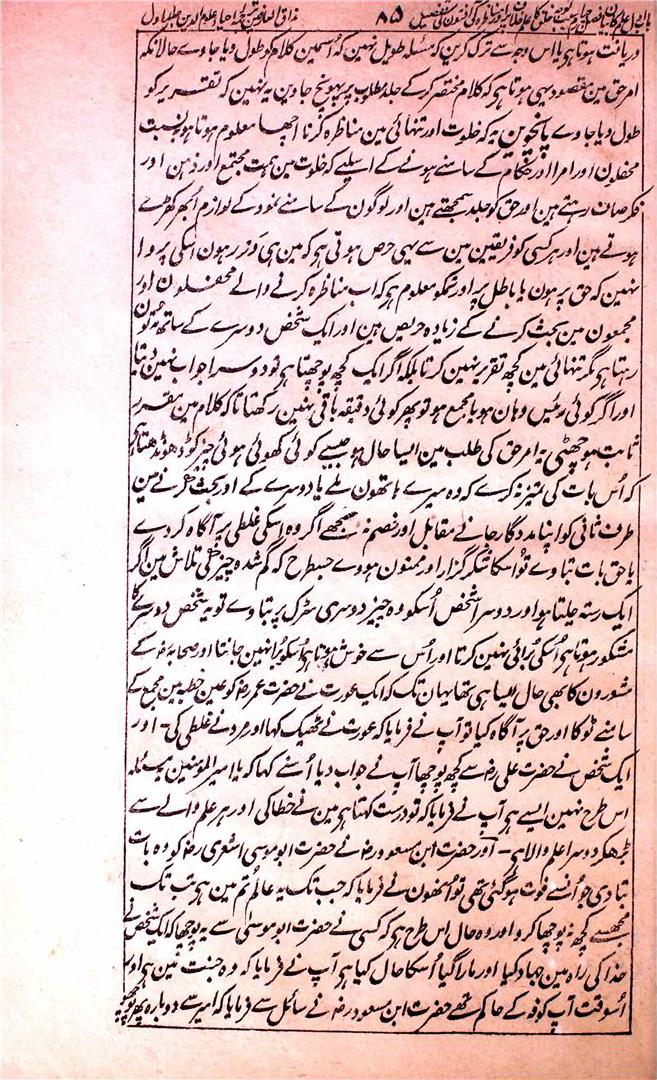 ۸۵ مذاق العارفین ترجمہ احیاء علوم الدین جلد اول
دریافت ہوتا ہی یا اس وجہ سے ترک کرین کہ مسئلہ طویل نہین کہ اُسمین کلام کو طول دیا جاوے حالانکہ
امر حق مین مقصود یہی ہوتا ہی کہ کلام مختصر کر کے جلد مطلوب پر پہونچ جاوین یہ نہین کہ تقریر کو
طول دیا جاوے پانچوین یہ کہ خلوت اور تنہائی مین مناظرہ کرنا اچھا معلوم ہوتا ہو بہ نسبت
محفلون اور امرا اور حکام کے سامنے ہونے کے اسلیے کہ خلوت مین ہمت مجتمع اور ذہن اور
فکر صاف رہتے ہین اور حق کو جلد سمجھتے ہین اور لوگون کے سامنے نمود کے لوازم اُبھر کھڑے
ہوتے ہین اور ہر کسی کو فریقین مین سے یہی حرص ہوتی ہی کہ مین ہی ور رہون اسکی پروا
نہین کہ حق پر ہون یا باطل پر اور تمکو معلوم ہی کہ اب مناظرہ کرنے والے محفلون اور
مجمعون مین بحث کرنے کے زیادہ حریص ہین اور ایک شخص دوسرے کے ساتھ مدتون
رہتا ہی مگر تنہائی مین کچھ تقریر نہین کرتا بلکہ اگر ایک کچھ پوچھتا ہی تو دوسرا جواب نہین دیتا
اور اگر کوئی رئیس وہان ہو یا مجمع ہو تو پھر کوئی دقیقہ باقی نہین رکھتا تاکہ کلام مین مقرر
ثابت ہو چھٹی یہ امر حق کی طلب مین ایسا حال ہو جیسے کوئی کھوئی ہوئی چیز کو ڈھونڈھتا ہی
کہ اُس بات کی تمیز نہ کرے کہ وہ میرے ہاتھون ملے یا دوسرے کے اور بحث کرنے مین
طرف ثانی کو اپنا مددگار جانے مقابل اور خصم نہ سمجھے اگر وہ اسکی غلطی پر آگاہ کر دے
یا حق بات بتا دے تو اسکا شکر گزار اور ممنون ہووے جسطرح کہ گم شدہ چیز کی تلاش مین اگر
ایک رستہ چلتا ہو اور دوسرا شخص اُسکو وہ چیز دوسری سڑک پر بتا دے تو یہ شخص دوسرے کا
مشکور ہوتا ہی اُسکی بُرائی نہین کرتا اور اُس سے خوش ہوتا ہی اُسکو بُرا نہین جانتا اور صحابہ رضہ کے
مشورون کا بھی حال ایسا ہی تھا یہان تک کہ ایک عورت نے حضرت عمر رضہ کو عین خطبہ مین مجمع کے
سامنے ٹوکا اور حق پر آگاہ کیا تو آپ نے فرمایا کہ عورت نے ٹھیک کہا اور مرد نے غلطی کی۔ اور
ایک شخص نے حضرت علی رضہ سے کچھ پوچھا آپ نے جواب دیا اُسنے کہا کہ یا امیر المومنین یہ مسئلہ
اس طرح نہین ایسے ہی آپ نے فرمایا کہ تو درست کہتا ہی مین نے خطا کی اور ہر علم والے سے
بڑھکر دوسرا علم والا ہی۔ اور حضرت ابن مسعود رضہ نے حضرت ابو موسی اشعری رضہ کو وہ بات
بتا دی جو اُنسے فوت ہو گئی تھی تو اُنھون نے فرمایا کہ جب تک یہ عالم تم مین ہی تب تک
مجھسے کچھ نہ پوچھا کرو اور وہ حال اس طرح ہی کہ کسی نے حضرت ابو موسیٰ سے یہ پوچھا کہ ایک شخص نے
خدا کی راہ مین جہاد کیا اور مارا گیا اُسکا حال کیا ہی آپ نے فرمایا کہ وہ جنت مین ہی اور
اُسوقت آپ کوفہ کے حاکم تھے حضرت ابن مسعود رضہ نے سائل سے فرمایا کہ امیر سے دوبارہ پھر پوچھو